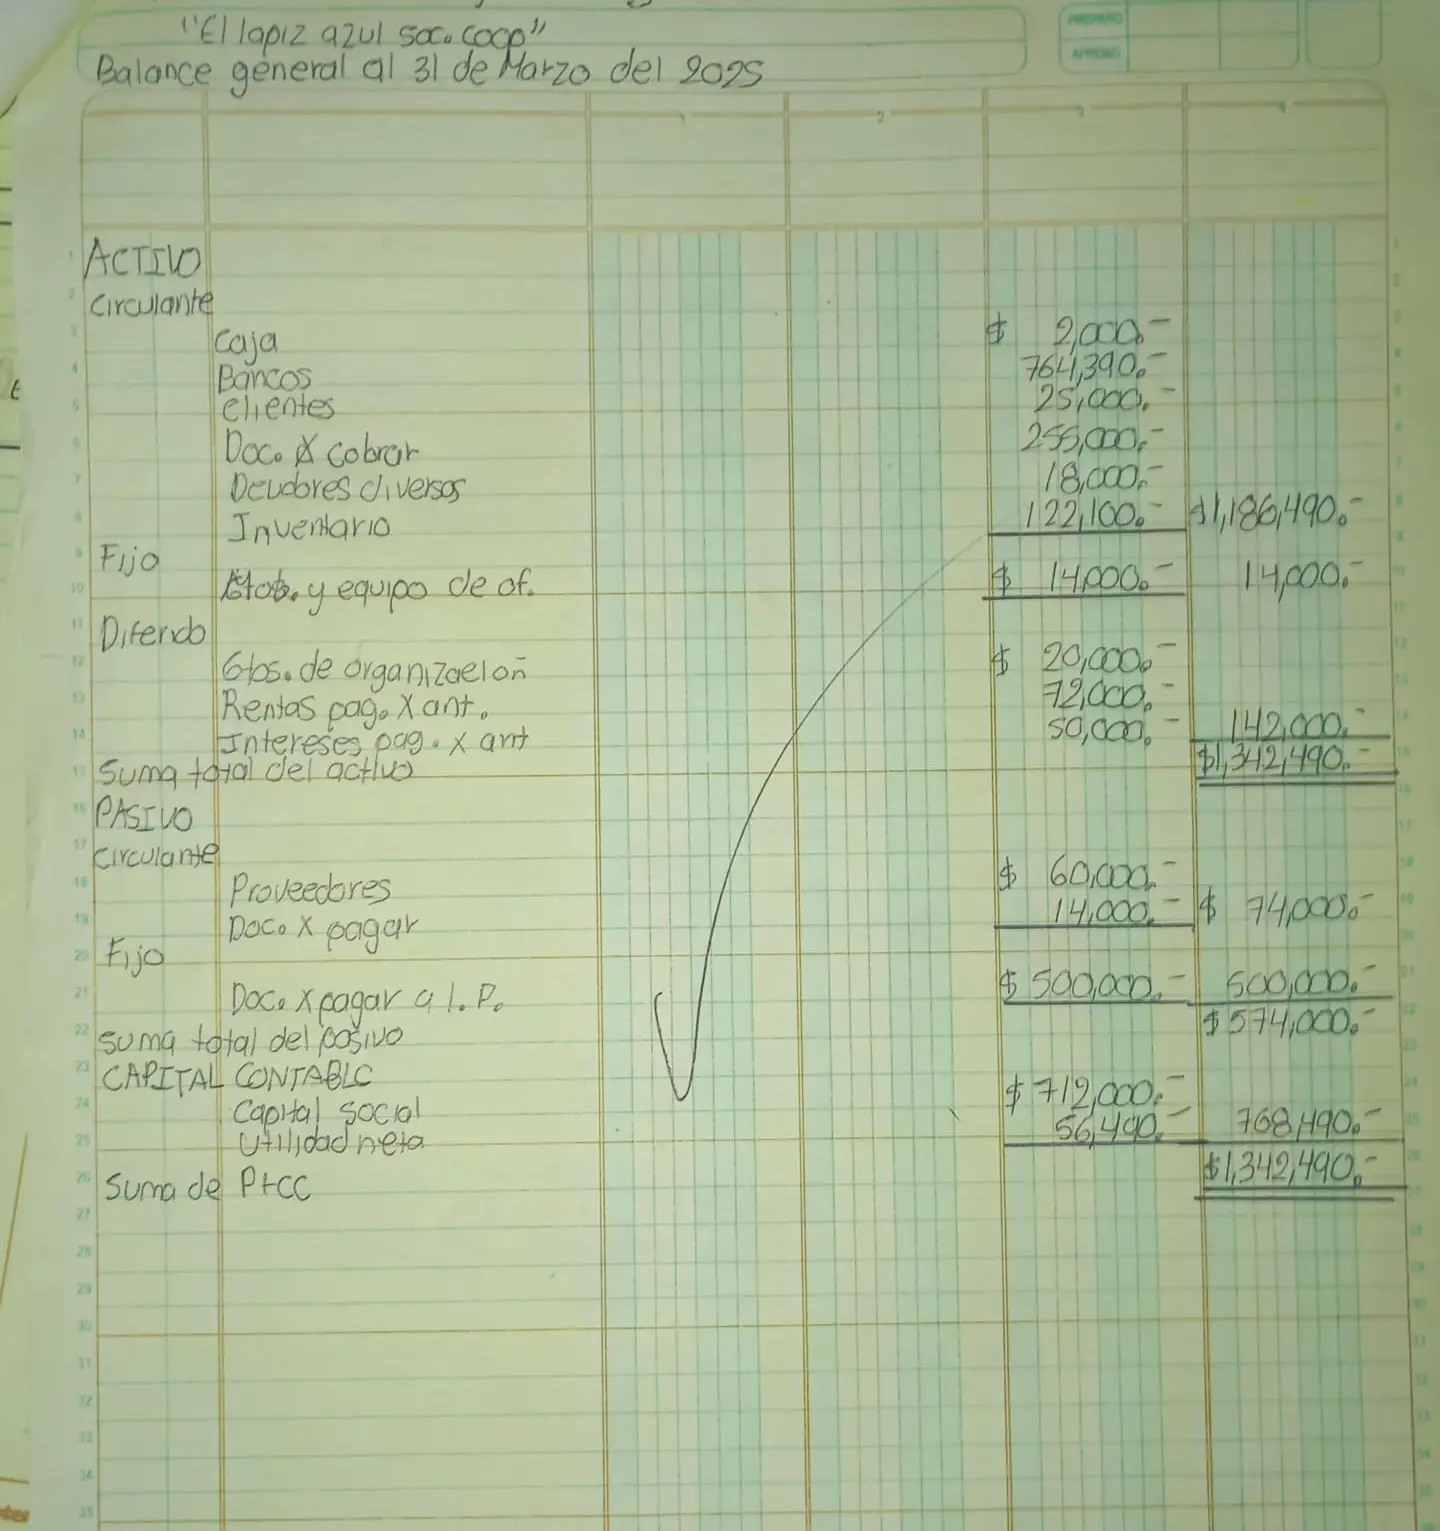 "El lapiz azul soc. coop"
Balance general al 31 de Marzo del 2025
PREPARO
APROBO
1 2 3 4
ACTIVO
Circulante
Caja $ 2,000.-
Bancos 764,390.-
Clientes 25,000.-
Doc. X cobrar 255,000.-
Deudores diversos 18,000.-
Inventario 122,100.- $1,186,490.-
Fijo
Mob. y equipo de of. $ 14,000.- 14,000.-
Diferido
Gtos. de organización $ 20,000.-
Rentas pag. X ant. 72,000.-
Intereses pag. x ant 50,000.- 142,000.-
Suma total del activo $1,342,490.-
PASIVO
Circulante
Proveedores $ 60,000.-
Doc. X pagar 14,000.- $ 74,000.-
Fijo
Doc. X pagar a l. P. $ 500,000.- 500,000.-
Suma total del pasivo $574,000.-
CAPITAL CONTABLE
Capital social $712,000.-
Utilidad neta 56,490.- 768,490.-
Suma de P+CC $1,342,490.-